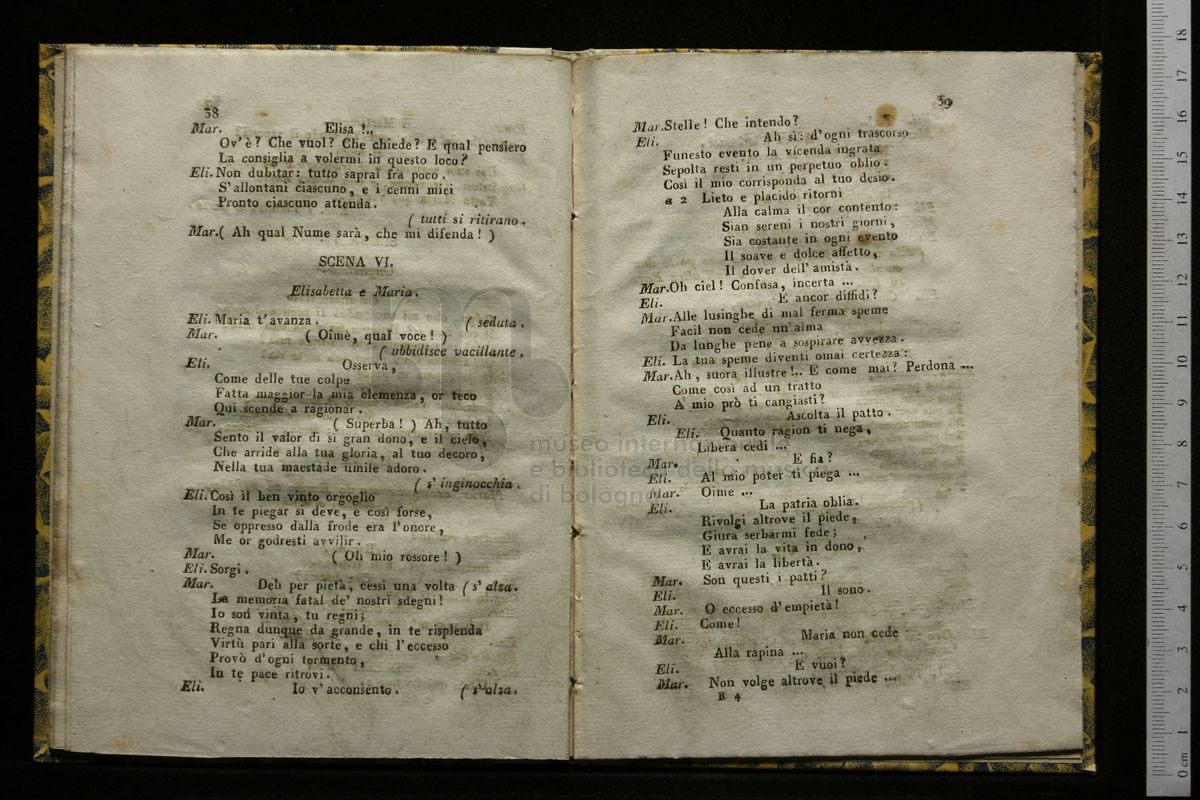 38
Mar. Elisa !..
Ov'è? Che vuol? Che chiede? E qual pensiero
La consiglia a volermi in questo loco?
Eli. Non dubitar: tutto saprai fra poco.
S'allontani ciascuno, e i cenni miei
Pronto ciascuno attenda.
( tutti si ritirano.
Mar. ( Ah qual Nume sarà, che mi difenda! )
SCENA VI.
Elisabetta e Maria.
Eli. Maria t'avanza. ( seduta.
Mar. ( Oimè, qual voce! )
( ubbidisce vacillante.
Eli. Osserva,
Come delle tue colpe
Fatta maggior la mia clemenza, or teco
Qui scende a ragionar.
Mar. ( Superba! ) Ah, tutto
Sento il valor di sì gran dono, e il cielo,
Che arride alla tua gloria, al tuo decoro,
Nella tua maestade umile adoro.
( s' inginocchia.
Eli. Così il ben vinto orgoglio
In te piegar si deve, e così forse,
Se oppresso dalla frode era l'onore,
Me or godresti avvilir.
Mar. ( Oh mio rossore! )
Eli. Sorgi.
Mar. Deh per pietà, cessi una volta ( s' alza.
La memoria fatal de' nostri sdegni!
Io son vinta, tu regni;
Regna dunque da grande, in te risplenda
Virtù pari alla sorte, e chi l'eccesso
Provò d'ogni tormento,
In te pace ritrovi.
Eli. Io v'acconsento. ( s' alza.
39
Mar. Stelle! Che intendo?
Eli. Ah sì: d'ogni trascorso
Funesto evento la vicenda ingrata
Sepolta resti in un perpetuo oblio.
Così il mio corrisponda al tuo desio.
a 2 Lieto e placido ritorni
Alla calma il cor contento:
Sian sereni i nostri giorni,
Sia costante in ogni evento
Il soave e dolce affetto,
Il dover dell' amistà.
Mar. Oh ciel! Confusa, incerta ...
Eli. E ancor diffidi?
Mar. Alle lusinghe di mal ferma speme
Facil non cede un'alma
Da lunghe pene a sospirare avvezza.
Eli. La tua speme diventi omai certezza:
Mar. Ah, suora illustre!.. E come mai? Perdona ...
Come così ad un tratto
A mio prò ti cangiasti?
Eli. Ascolta il patto.
Eli. Quanto ragion ti nega,
Libera cedi ...
Mar. E fia?
Eli. Al mio poter ti piega ...
Mar. Oime ...
Eli. La patria oblia.
Rivolgi altrove il piede,
Giura serbarmi fede;
E avrai la vita in dono,
E avrai la libertà.
Mar. Son questi i patti?
Eli. Il sono.
Mar. O eccesso d'empietà!
Eli. Come!
Mar. Maria non cede
Alla rapina ...
Eli. E vuoi?
Mar. Non volge altrove il piede ...
B 4
museo internazionale
e biblioteca della musica
di bologna
0 cm 1 2 3 4 5 6 7 8 9 10 11 12 13 14 15 16 17 18